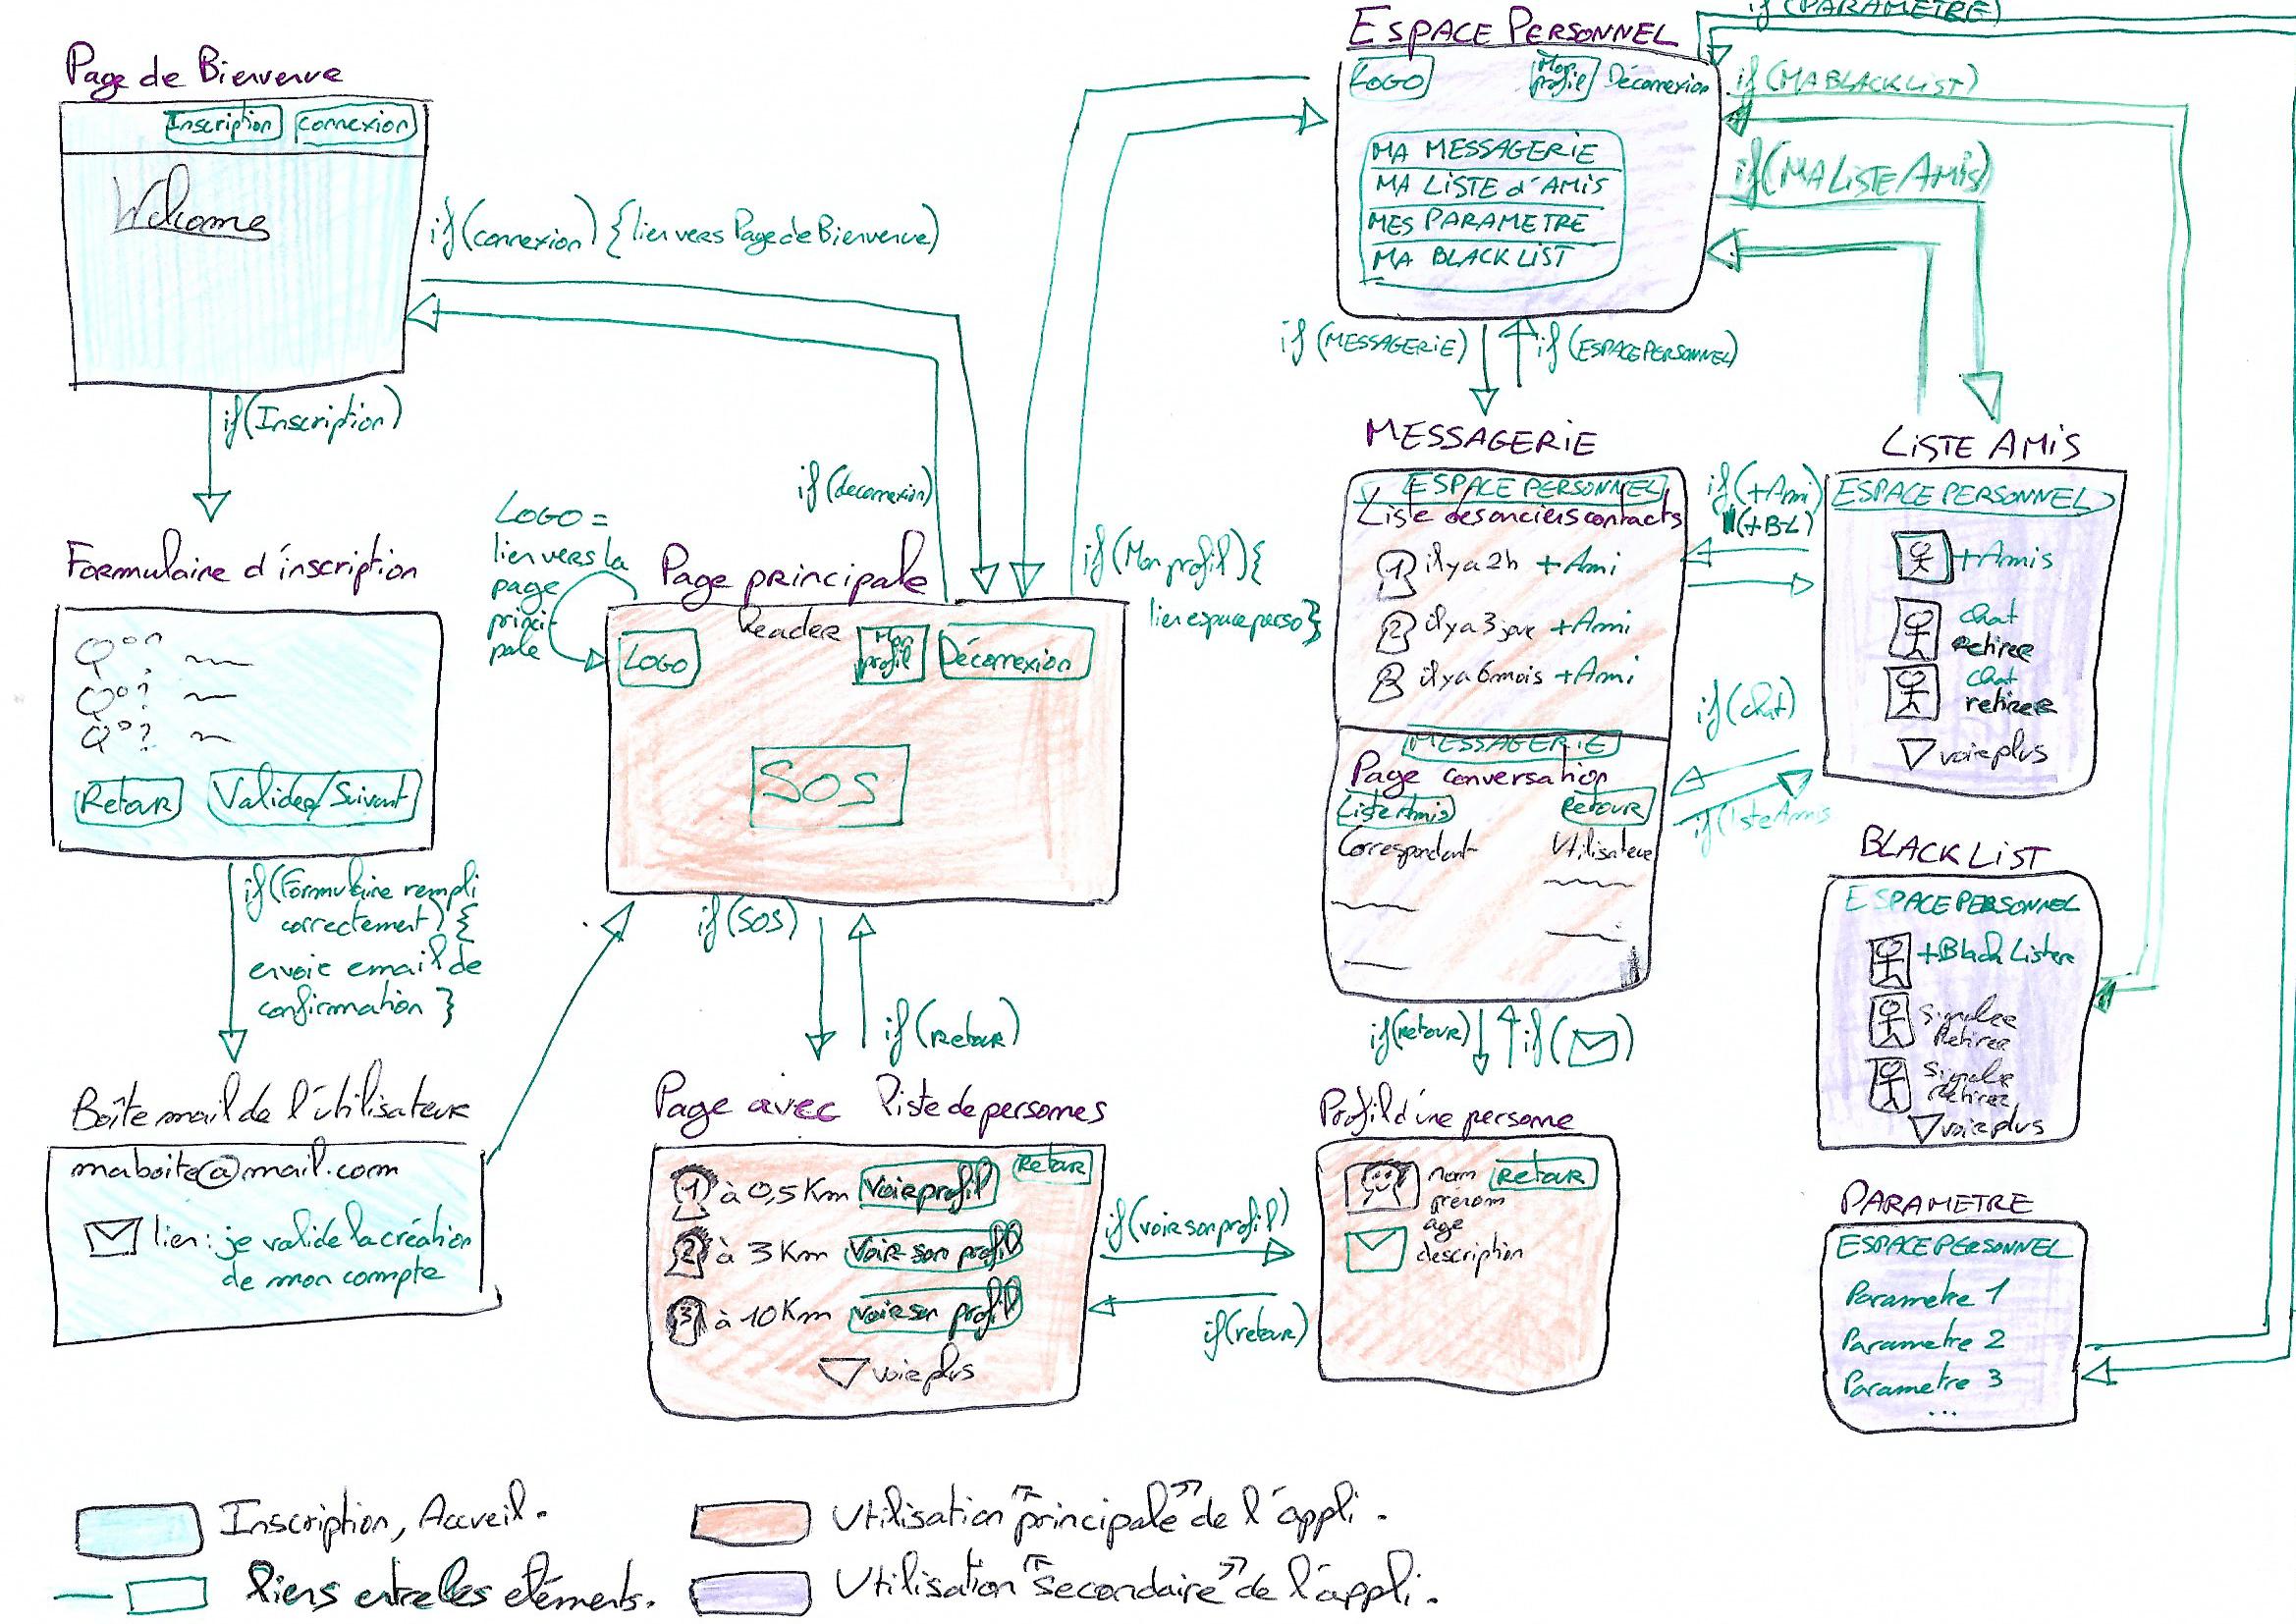 Page de Bienvenue
Inscription
connexion
Welcome
if(connexion) { lien vers Page de Bienvenue}
if(Inscription)
Formulaire d'inscription
Q°° ?
Q°°?
Q°°?
Retour
Valider/Suivant
if(Formulaire rempli
correctement) {
envoie email de
confirmation }
Boîte mail de l'utilisateur
maboite@mail.com
lien : je valide la création
de mon compte
LOGO =
lien vers la
page
princi-
pale
if(deconnexion)
Page principale
header
LOGO
Mon
profil
Déconnexion
SOS
if(Mon profil){
lien espace perso}
if(SOS)
if(retour)
Page avec liste de personnes
Retour
1 à 0,5 Km Voir profil
2 à 3 Km Voir son profil
3 à 10 Km voir son profil
voir plus
if(voir son profil)
if(retour)
ESPACE PERSONNEL
LOGO
Mon
profil
Déconnexion
MA MESSAGERIE
MA LISTE d'AMIS
MES PARAMETRE
MA BLACK LIST
if(PARAMETRE)
if(MA BLACK LIST)
if(MA LISTE AMIS)
if(MESSAGERIE)
if(ESPACE PERSONNEL)
MESSAGERIE
ESPACE PERSONNEL
Liste des anciers contacts
1 il y a 2h + Ami
2 il y a 3 jour + Ami
3 il y a 6 mois + Ami
MESSAGERIE
Page conversation
Liste Amis
Retour
Correspondant
Utilisateur
if(+Ami)
(+B-L)
if(chat)
if(listeAmis
if(retour)
if( )
Profil d'une personne
nom
Retour
prénom
age
description
LISTE AMIS
ESPACE PERSONNEL
+Amis
chat
Retirer
chat
retirer
voir plus
BLACK LIST
ESPACE PERSONNEL
+Black Lister
Signaler
Retirer
Signaler
Retirer
voir plus
PARAMETRE
ESPACE PERSONNEL
Parametre 1
Parametre 2
Parametre 3
...
Inscription, Accueil.
liens entre les eléments.
Utilisation "principale" de l'appli.
Utilisation "secondaire" de l'appli.